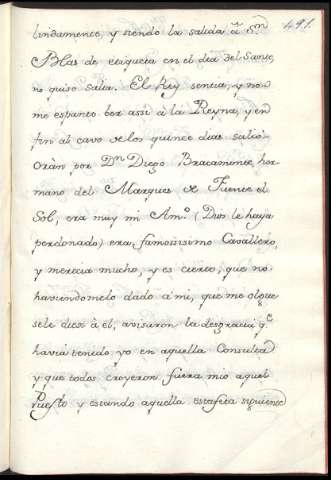 491.
lindamente, y siendo la salida â Sn.
Blas de etiqueta en el dia del Santo,
no quiso salir. El Rey sentia, y no
me espanto ver assi à la Reyna, y en
fin al cavo de los quince dias salió
Orán por Dn. Diego Bracamonte, her-
mano del Marques de Fuente el
Sól, era muy mi Amo. (Dios le haya
perdonado) era famosissimo Cavallero,
y merecia mucho, y es cierto, que no
haviendomelo dado à mi, que me olgue
se le diese à èl, avisaron la desgracia qe.
havia tenido yo en aquella Consulta
y que todos creyeron fuera mio aquel
Puesto y estando aquella estafeta siguiente